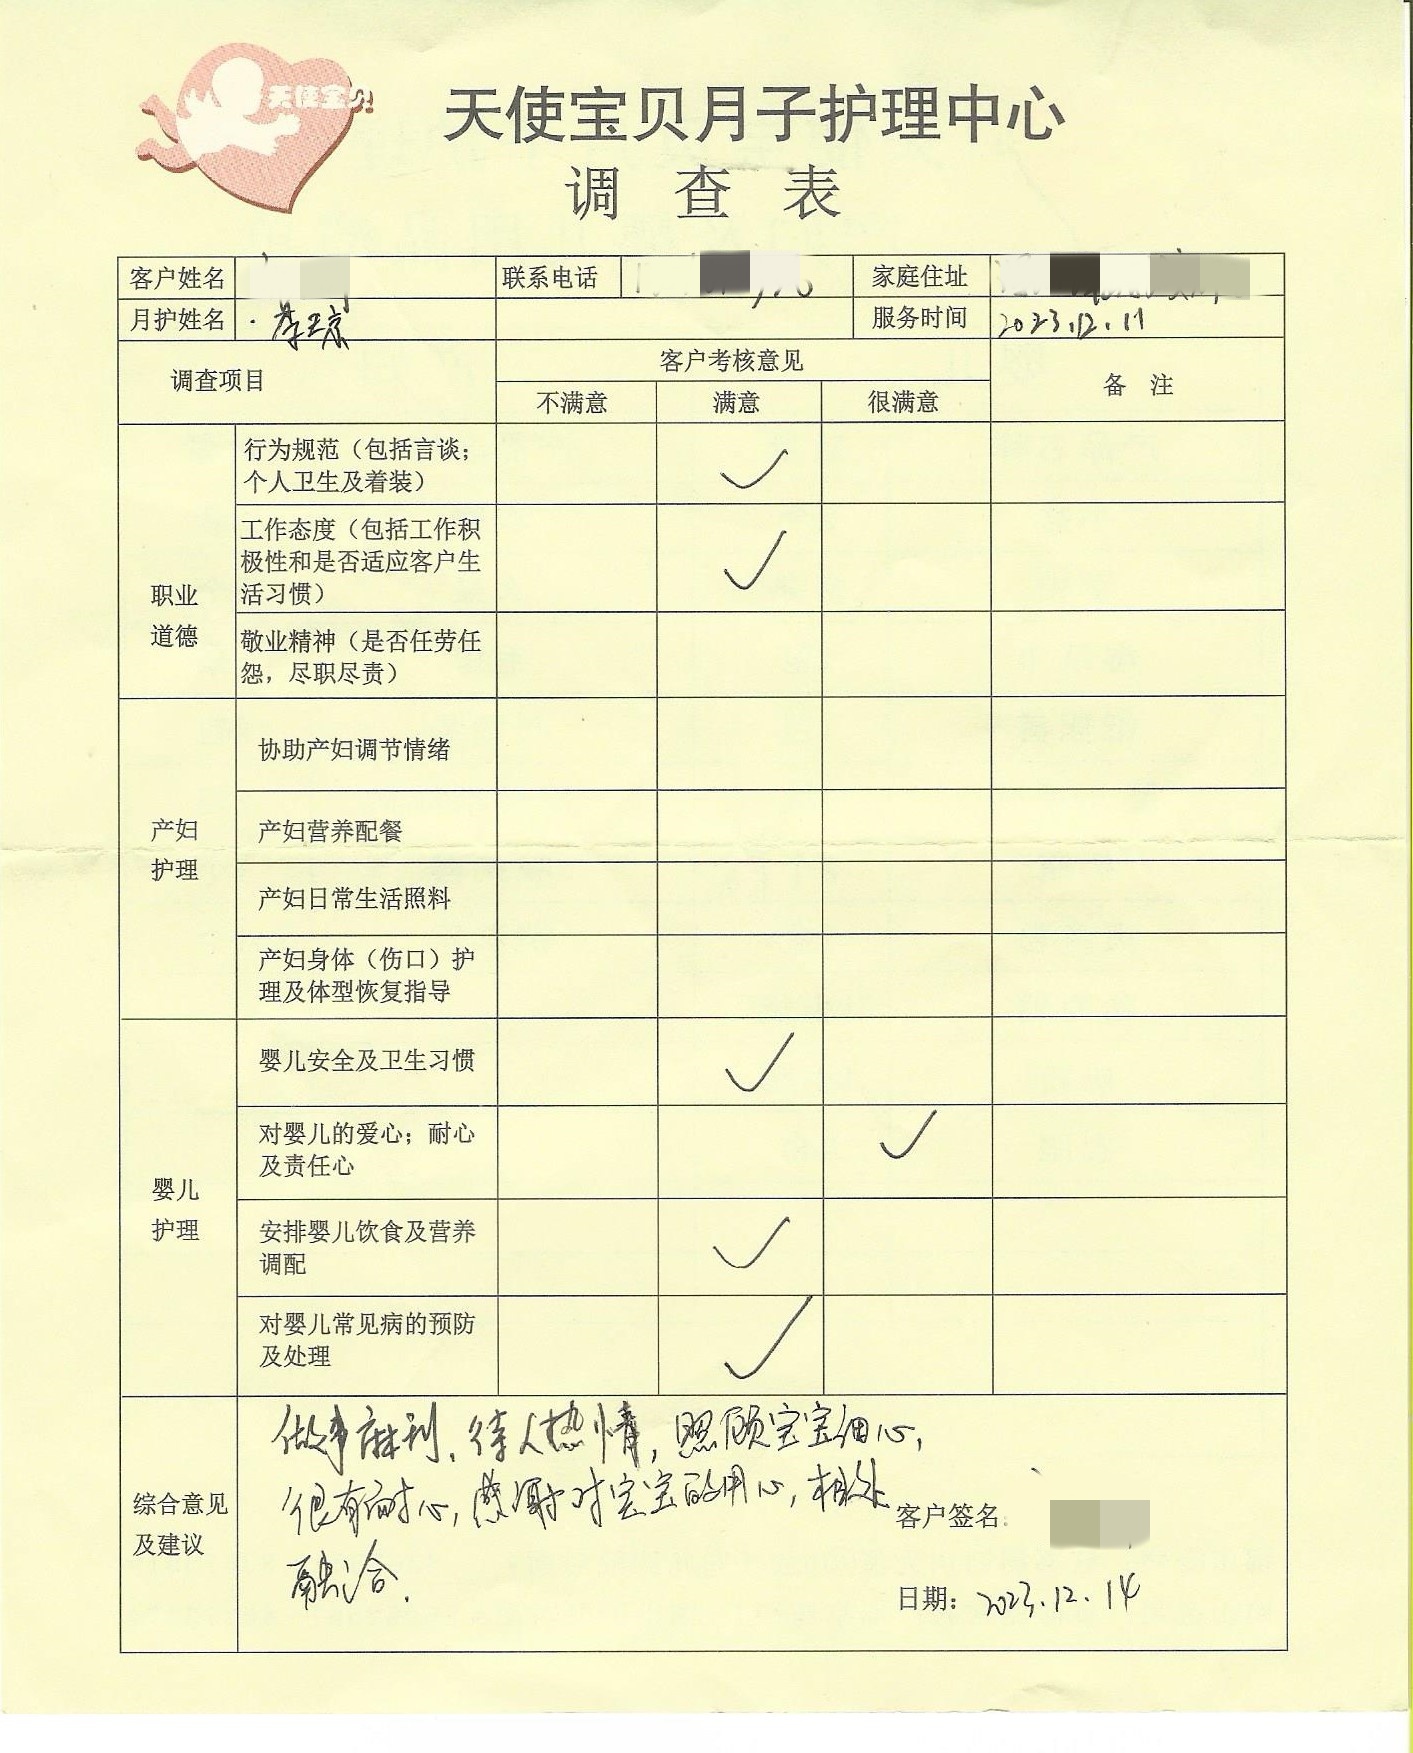 天使宝贝
天使宝贝月子护理中心
调 查 表
客户姓名 联系电话 家庭住址
月护姓名 服务时间 2023.12.11
调查项目 客户考核意见 备 注
不满意 满意 很满意
职业
道德
行为规范（包括言谈；
个人卫生及着装）
工作态度（包括工作积
极性和是否适应客户生
活习惯）
敬业精神（是否任劳任
怨，尽职尽责）
产妇
护理
协助产妇调节情绪
产妇营养配餐
产妇日常生活照料
产妇身体（伤口）护
理及体型恢复指导
婴儿
护理
婴儿安全及卫生习惯
对婴儿的爱心；耐心
及责任心
安排婴儿饮食及营养
调配
对婴儿常见病的预防
及处理
综合意见
及建议
做事麻利，待人热情，照顾宝宝细心，
很有耐心，感谢对宝宝的用心，相处
融洽.
客户签名:
日期：2023.12.14